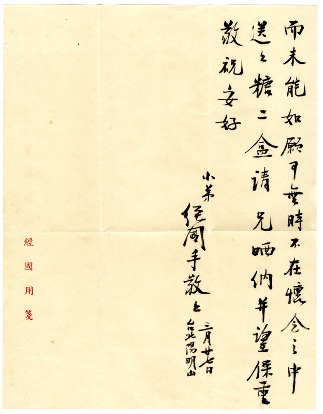 而未能如願無時不在懷念之中
送上糖二盒請 兄哂納並望保重
敬祝安好
小弟
經國手敬上
三月廿七日
台北陽明山
經國用箋